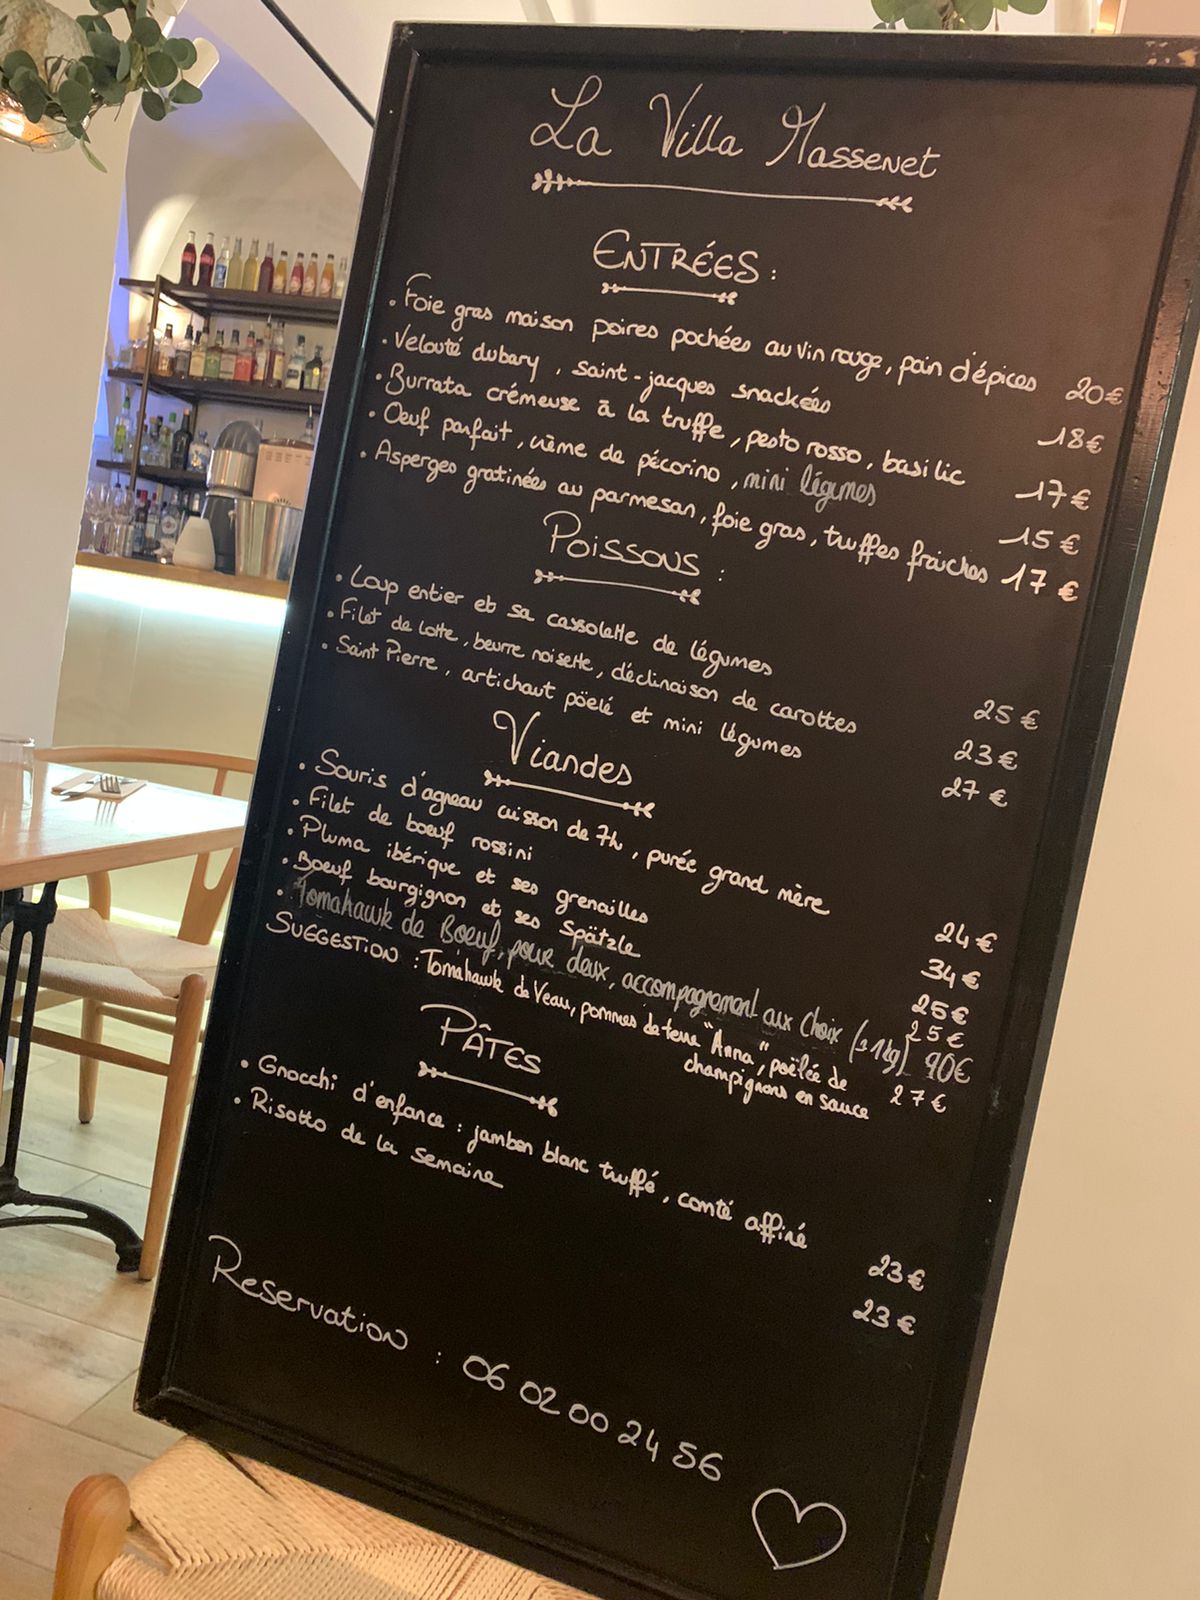 La Villa Massenet
ENTRÉES :
. Foie gras maison poires pochées au vin rouge, pain d'épices 20€
. Velouté dubary, saint-jacques snackées 18€
. Burrata crémeuse à la truffe, pesto rosso, basilic 17€
. Oeuf parfait, crème de pécorino, mini légumes 15€
. Asperges gratinées au parmesan, foie gras, truffes fraiches 17€
Poissons :
. Loup entier et sa cassolette de légumes 25€
. Filet de lotte, beurre noisette, déclinaison de carottes 23€
. Saint Pierre, artichaut pöelé et mini légumes 27€
Viandes
. Souris d'agneau cuisson de 7h, purée grand mère 24€
. Filet de boeuf rossini 34€
. Pluma ibérique et ses grenailles 25€
. Boeuf bourgignon et ses Spätzle 25€
. Tomahawk de Boeuf, pour deux, accompagnement aux choix (± 1kg) 90€
SUGGESTION : Tomahawk de Veau, pommes de terre "Anna", poëlée de
champignons en sauce 27€
PÂTES
. Gnocchi d'enfance : jambon blanc truffé, comté affiné 23€
. Risotto de la semaine 23€
Reservation : 06 02 00 24 56